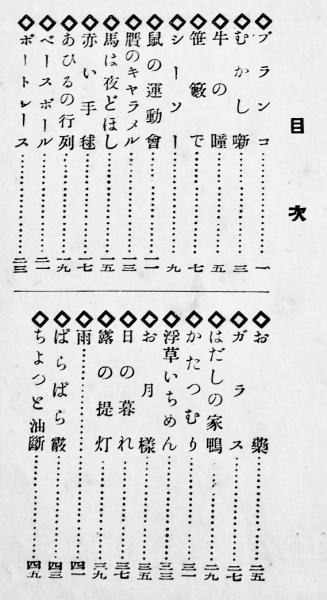 目次
ブランコ 一
むかし噺 三
牛の瞳 五
笹籔で 七
シーソー 九
鼠の運動會 一一
贋のキャラメル 一三
馬は夜どほし 一五
赤い手毬 一七
あひるの行列 一九
ベースボール 二一
ボートレース 二三
お藥 二五
ガラス 二七
はだしの家鴨 二九
かたつむり 三一
浮草いちめん 三三
お月樣 三五
日の暮れ 三七
露の提灯 三九
雨 四一
ぱらぱら霰 四三
ちよつと油斷 四五